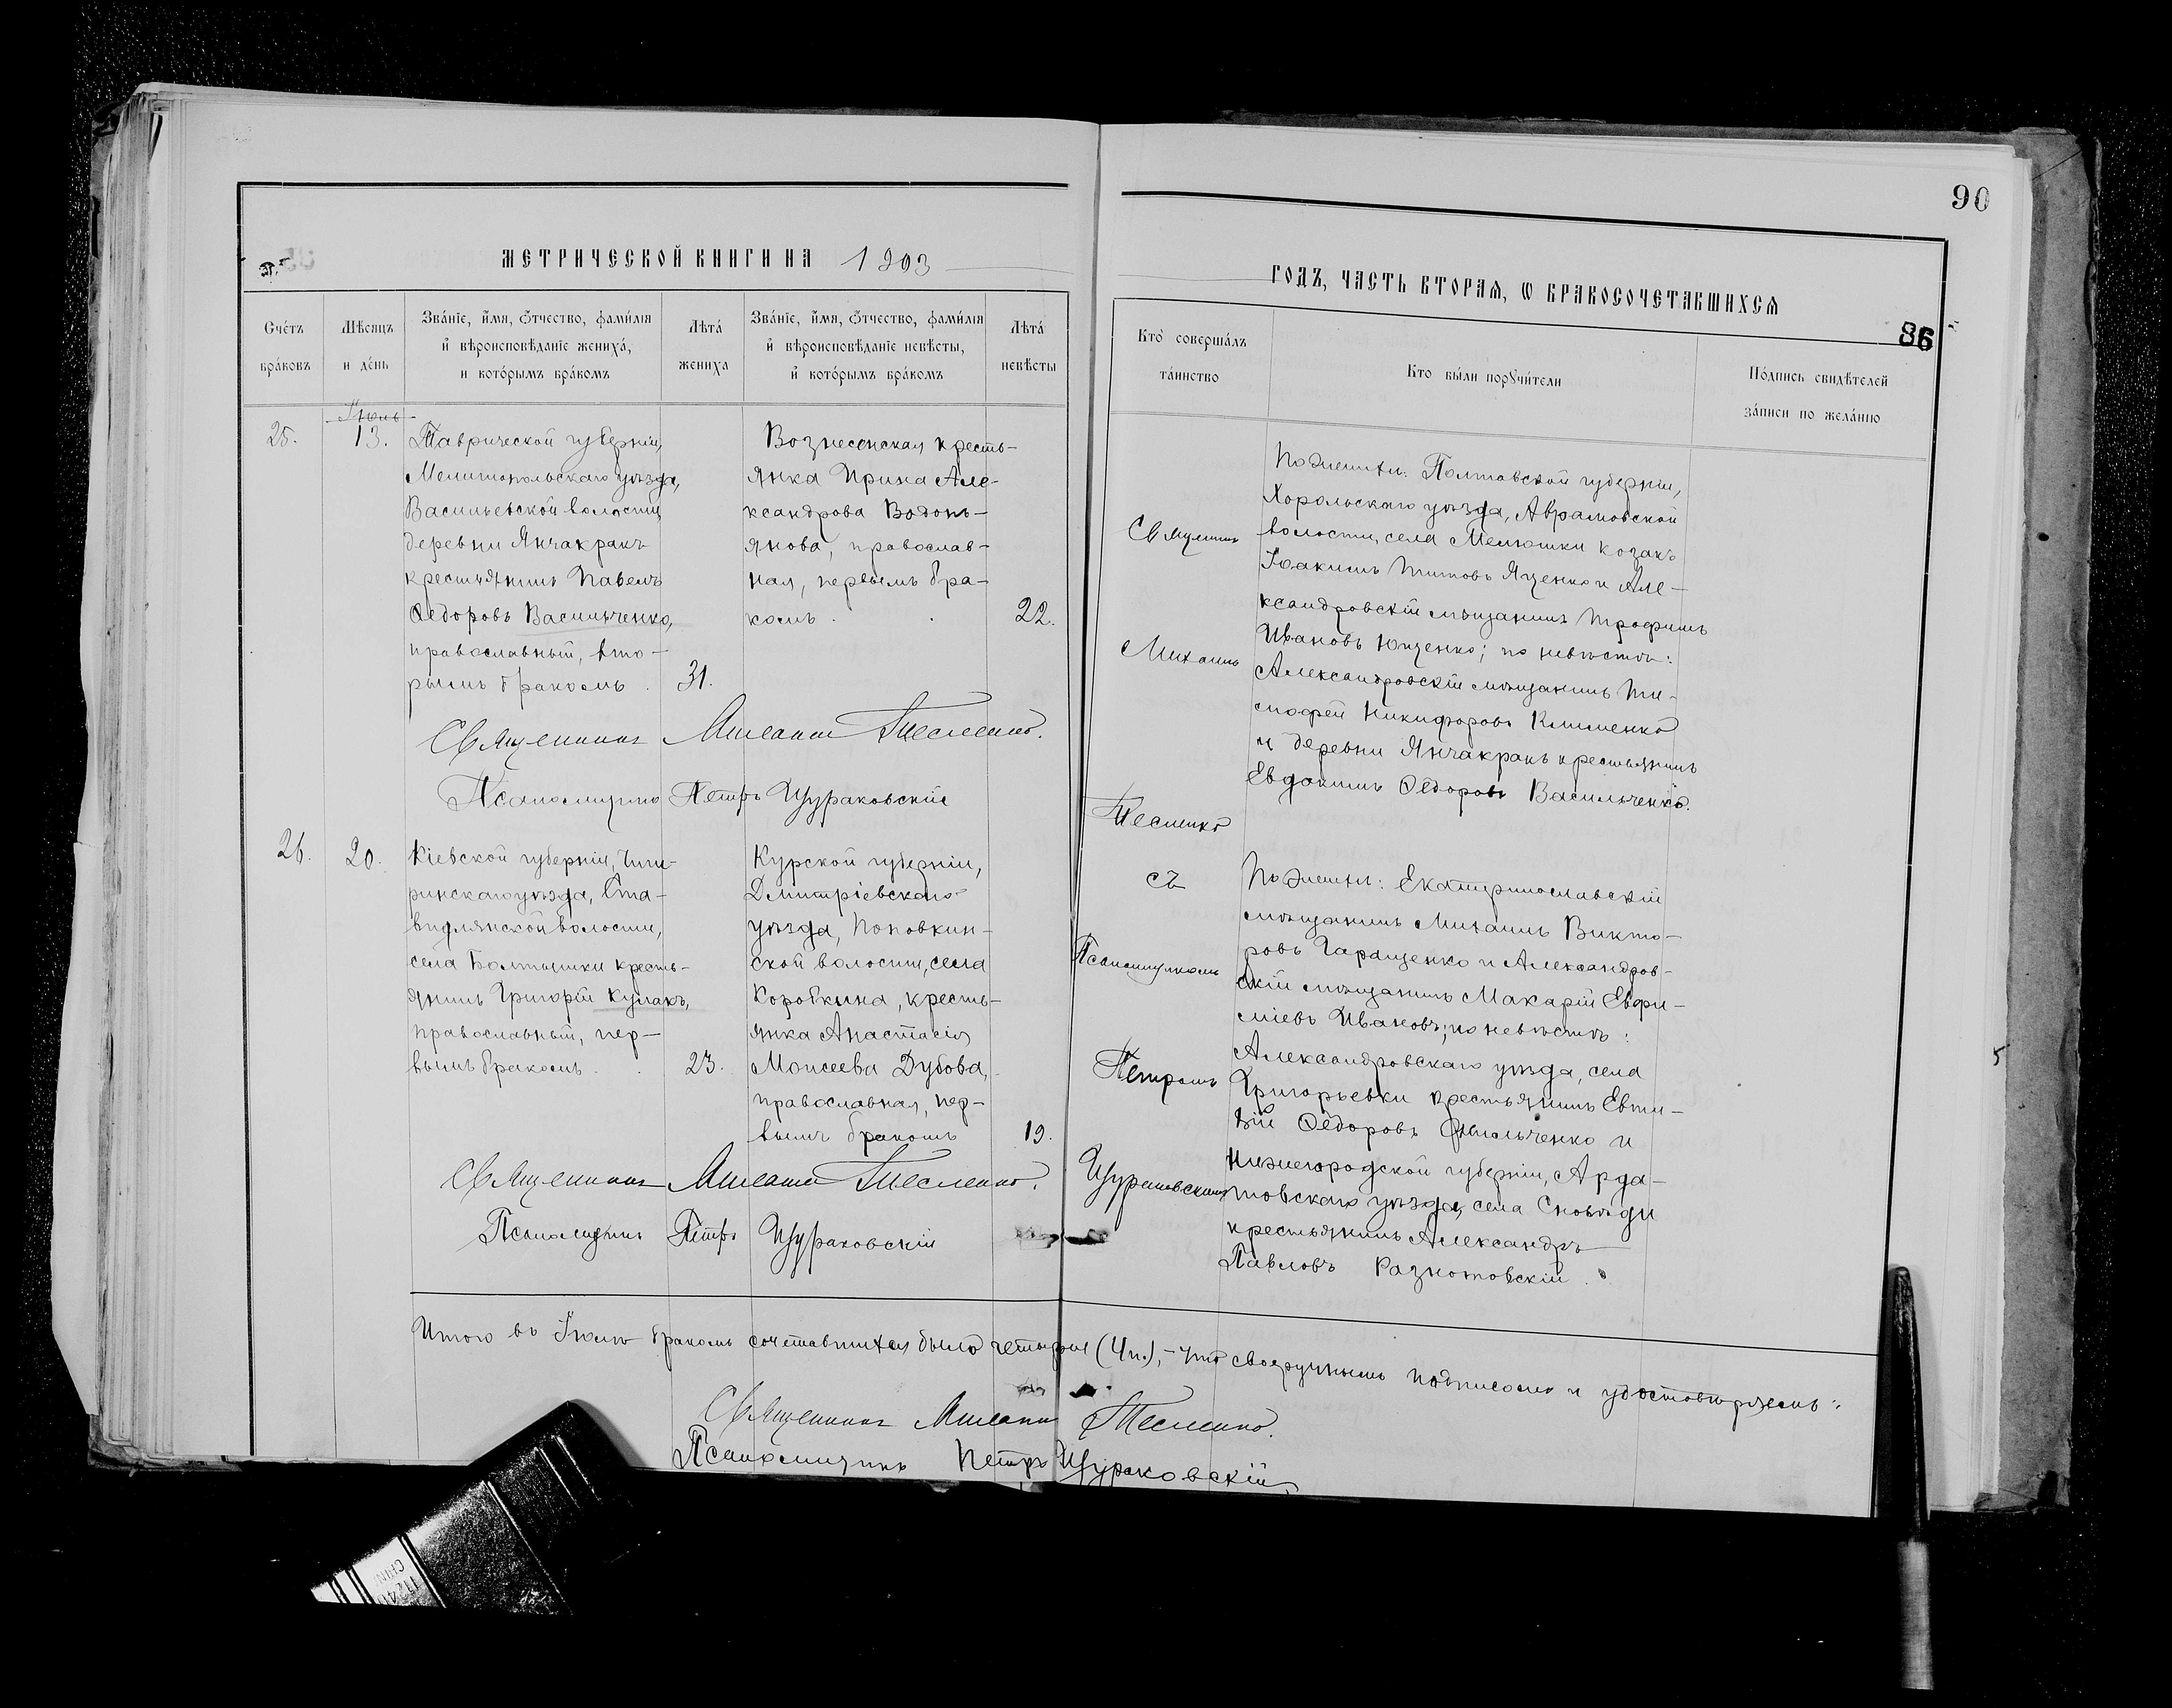 90
МЕТРИЧЕСКОЙ КНИГИ НА 1903
ГОДЪ, ЧАСТЬ ВТОРАЯ, Ѡ БРАКОСОЧЕТАВШИХСЯ
86
Счетъ браковъ
Мѣсяцъ и день
Званіе, имя, отчество, фамилія
и вѣроисповѣданіе жениха,
и которымъ бракомъ
Лѣта жениха
Званіе, имя, отчество, фамилія
и вѣроисповѣданіе невѣсты,
и которымъ бракомъ
Лѣта невѣсты
Кто совершалъ
таинство
Кто были порꙋчители
Подпись свидѣтелей
записи по желанію
Іюль
25.
13.
Таврической губерніи,
Мелитопольскаго уѣзда,
Васильевской волости,
деревни Янчакракъ
крестьянинъ Павелъ
Ѳедоровъ Васильченко,
православный, вто-
рымъ бракомъ.
31.
Вознесенская кресть-
янка Ирина Але-
ксандрова Водопь-
янова, православ-
ная, первымъ бра-
комъ.
22.
Священникъ Михаилъ Тесленко.
Псаломщикъ Петръ Щураковскій
Священникъ
Михаилъ
Тесленко
съ
Псаломщикомъ
Петромъ
Щураковскимъ
По женихѣ: Полтавской губерніи,
Хорольскаго уѣзда, Аврамовской
волости, села Мелюшки козакъ
Іоакимъ Титовъ Яценко и Але-
ксандровскій мѣщанинъ Трофимъ
Ивановъ Ющенко; по невѣстѣ:
Александровскій мѣщанинъ Ти-
мофей Никифоровъ Клименко
и деревни Янчакракъ крестьянинъ
Евдокимъ Ѳедоровъ Васильченко.
26.
20.
Кіевской губерніи, Чиги-
ринскаго уѣзда, Ста-
видлянской волости,
села Болтышки кресть-
янинъ Григорій Кулакъ,
православный, пер-
вымъ бракомъ.
23.
Курской губерніи,
Дмитріевскаго
уѣзда, Поповкин-
ской волости, села
Коробкина, кресть-
янка Анастасія
Моисеева Дубова,
православная, пер-
вымъ бракомъ
19.
Священникъ Михаилъ Тесленко.
Псаломщикъ Петръ Щураковскій
По женихѣ: Екатеринославскій
мѣщанинъ Михаилъ Викто-
ровъ Гаращенко и Александров-
скій мѣщанинъ Макарій Евфи-
міевъ Ивановъ; по невѣстѣ:
Александровскаго уѣзда, села
Григорьевки крестьянинъ Евти-
хій Ѳедоровъ и
Нижегородской губерніи, Арда-
товскаго уѣзда, села
крестьянинъ Александръ
Павловъ Разнотовскій.
Итого въ Іюлѣ бракомъ сочетавшихся было четыре (4 п.), - что своеручнымъ подписомъ и удостовѣряемъ:
Священникъ Михаилъ Тесленко.
Псаломщикъ Петръ Щураковскій